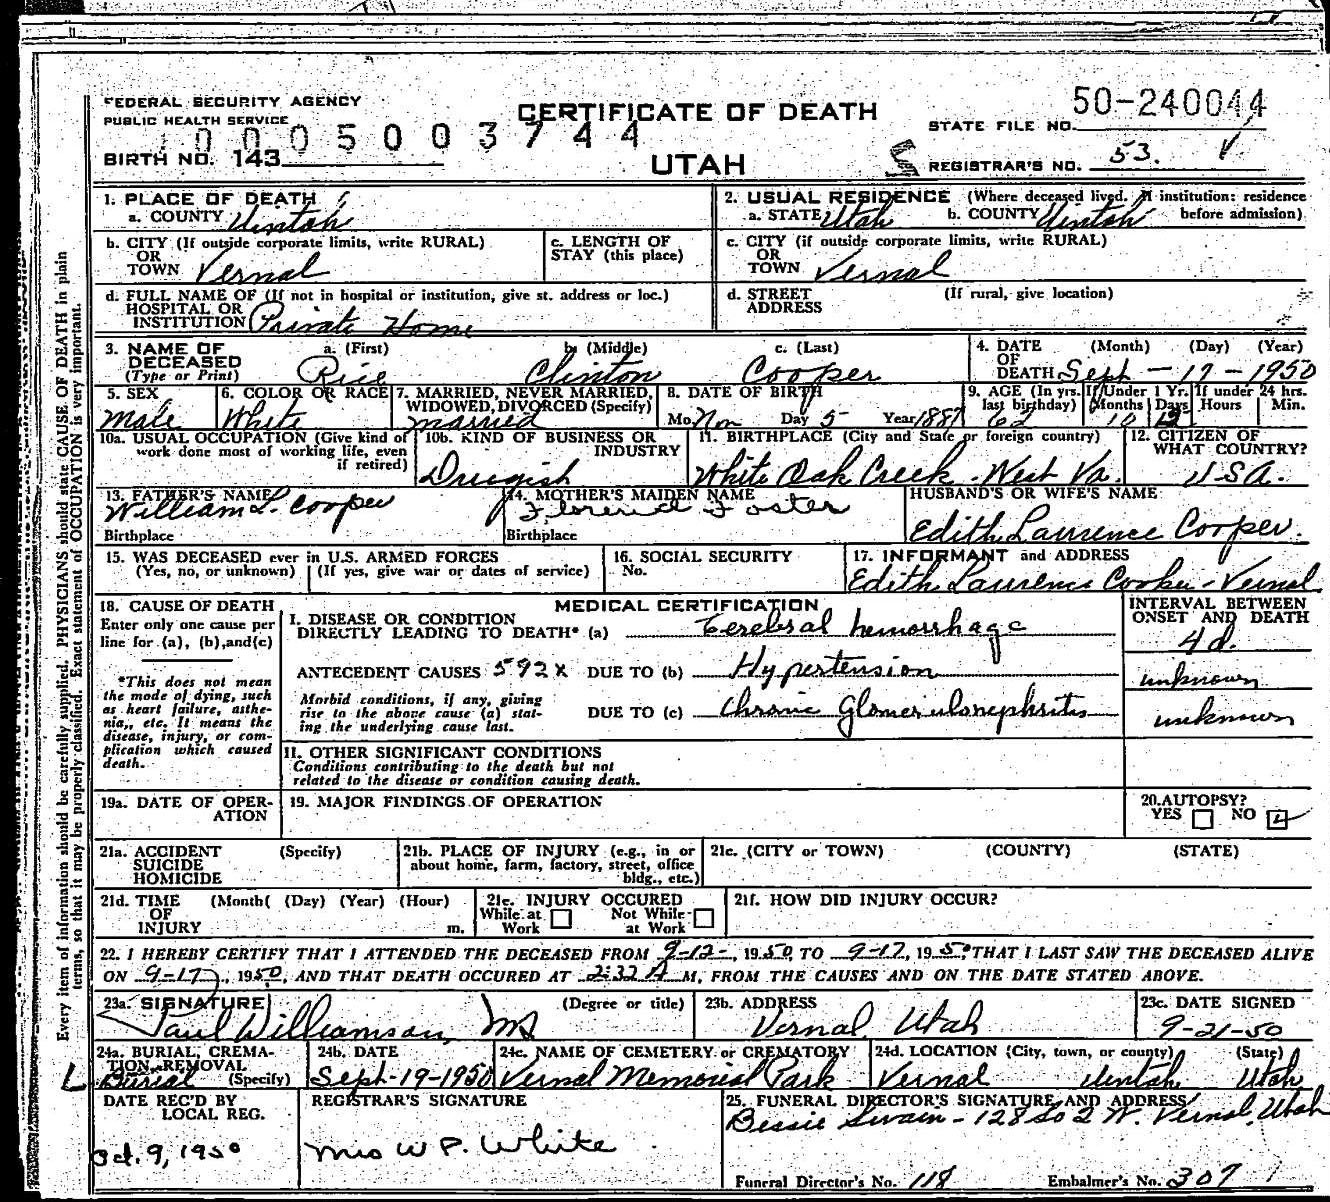 FEDERAL SECURITY AGENCY
PUBLIC HEALTH SERVICE
CERTIFICATE OF DEATH
50-240044
STATE FILE NO.
0005003744
BIRTH NO. 143
UTAH
S REGISTRAR'S NO. 53.
1. PLACE OF DEATH
a. COUNTY Uintah
2. USUAL RESIDENCE (Where deceased lived. If institution: residence before admission)
a. STATE Utah b. COUNTY Uintah
b. CITY (If outside corporate limits, write RURAL)
OR
TOWN Vernal
c. LENGTH OF
STAY (this place)
c. CITY (if outside corporate limits, write RURAL)
OR
TOWN Vernal
d. FULL NAME OF (If not in hospital or institution, give st. address or loc.)
HOSPITAL OR
INSTITUTION Private Home
d. STREET (If rural, give location)
ADDRESS
3. NAME OF a. (First) b. (Middle) c. (Last)
DECEASED
(Type or Print) Rice Clinton Cooper
4. DATE (Month) (Day) (Year)
OF
DEATH Sept - 17 - 1950
5. SEX
Male
6. COLOR OR RACE
White
7. MARRIED, NEVER MARRIED,
WIDOWED, DIVORCED (Specify)
Married
8. DATE OF BIRTH
Mo. Nov Day 5 Year 1887
9. AGE (In yrs. last birthday) 62
If Under 1 Yr. Months 10 Days 12
If under 24 hrs. Hours Min.
10a. USUAL OCCUPATION (Give kind of
work done most of working life, even
if retired)
10b. KIND OF BUSINESS OR
INDUSTRY
Druggist
11. BIRTHPLACE (City and State or foreign country)
White Oak Creek - West Va.
12. CITIZEN OF
WHAT COUNTRY?
USA.
13. FATHER'S NAME
William L. Cooper
Birthplace
14. MOTHER'S MAIDEN NAME
Florence Foster
Birthplace
HUSBAND'S OR WIFE'S NAME
Edith Laurence Cooper.
15. WAS DECEASED ever in U.S. ARMED FORCES
(Yes, no, or unknown) (If yes, give war or dates of service)
16. SOCIAL SECURITY
No.
17. INFORMANT and ADDRESS
Edith Laurence Cooper - Vernal
18. CAUSE OF DEATH
Enter only one cause per
line for (a), (b), and (c)
*This does not mean
the mode of dying, such
as heart failure, asthe-
nia, etc. It means the
disease, injury, or com-
plication which caused
death.
MEDICAL CERTIFICATION
I. DISEASE OR CONDITION
DIRECTLY LEADING TO DEATH* (a) Cerebral hemorrhage
ANTECEDENT CAUSES 592X DUE TO (b) Hypertension
Morbid conditions, if any, giving
rise to the above cause (a) stat-
ing the underlying cause last.
DUE TO (c) Chronic Glomerulonephritis
INTERVAL BETWEEN
ONSET AND DEATH
4d.
unknown
unknown
II. OTHER SIGNIFICANT CONDITIONS
Conditions contributing to the death but not
related to the disease or condition causing death.
19a. DATE OF OPER-
ATION
19. MAJOR FINDINGS OF OPERATION
20. AUTOPSY?
YES NO
21a. ACCIDENT (Specify)
SUICIDE
HOMICIDE
21b. PLACE OF INJURY (e.g., in or
about home, farm, factory, street, office
bldg., etc.)
21c. (CITY or TOWN) (COUNTY) (STATE)
21d. TIME (Month( (Day) (Year) (Hour)
OF
INJURY m.
21e. INJURY OCCURED
While at Work Not While at Work
21f. HOW DID INJURY OCCUR?
22. I HEREBY CERTIFY THAT I ATTENDED THE DECEASED FROM 9-12-, 1950, TO 9-17, 1950, THAT I LAST SAW THE DECEASED ALIVE
ON 9-17, 1950, AND THAT DEATH OCCURED AT 2:32 A M, FROM THE CAUSES AND ON THE DATE STATED ABOVE.
23a. SIGNATURE (Degree or title)
Paul Williamson, MD
23b. ADDRESS
Vernal, Utah
23c. DATE SIGNED
9-21-50
24a. BURIAL, CREMA-
TION, REMOVAL
Burial (Specify)
24b. DATE
Sept-19-1950
24c. NAME OF CEMETERY or CREMATORY
Vernal Memorial Park
24d. LOCATION (City, town, or county) (State)
Vernal Uintah Utah
DATE REC'D BY
LOCAL REG.
Oct. 9, 1950
REGISTRAR'S SIGNATURE
Mrs W P. White
25. FUNERAL DIRECTOR'S SIGNATURE AND ADDRESS
Bessie Swain - 128 So 2 W. Vernal, Utah
Funeral Director's No. 118 Embalmer's No. 307
Every item of information should be carefully supplied. PHYSICIANS should state CAUSE OF DEATH in plain
terms, so that it may be properly classified. Exact statement of OCCUPATION is very important.